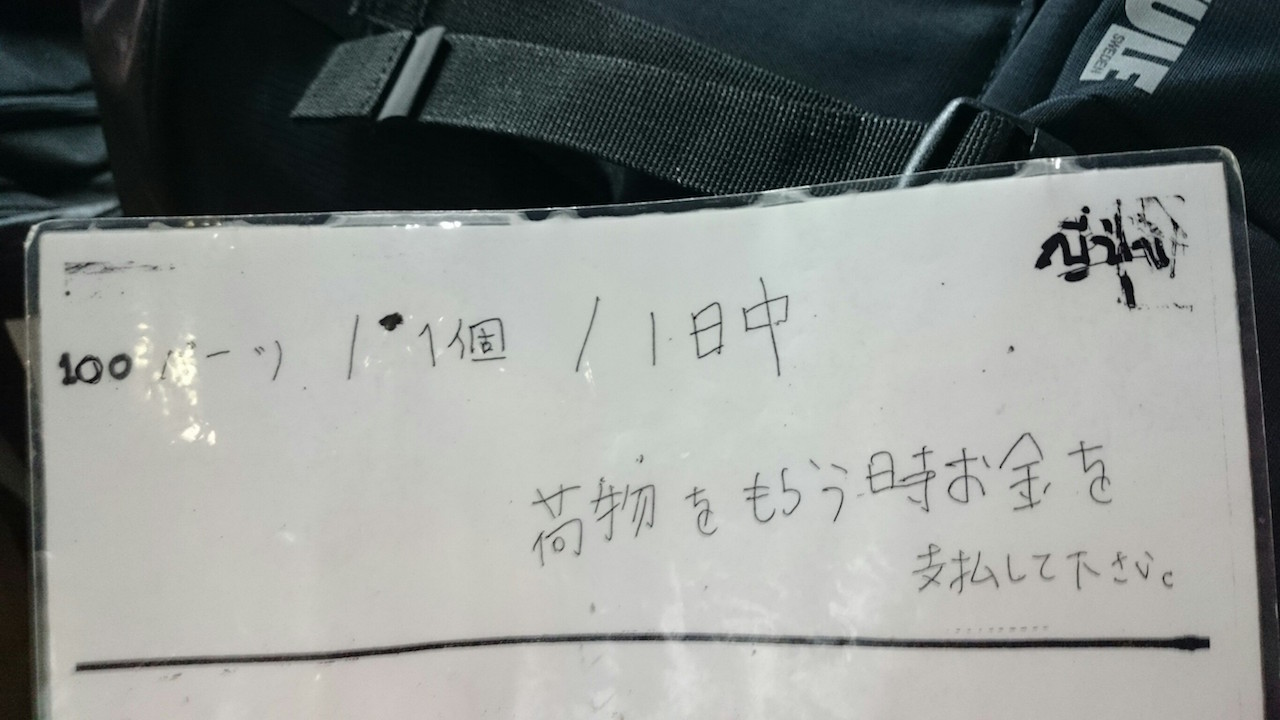 SWEDEN
ญี่ปุ่น
100 バーツ / 1個 / 1日中
荷物をもらう時お金を
支払して下さい。